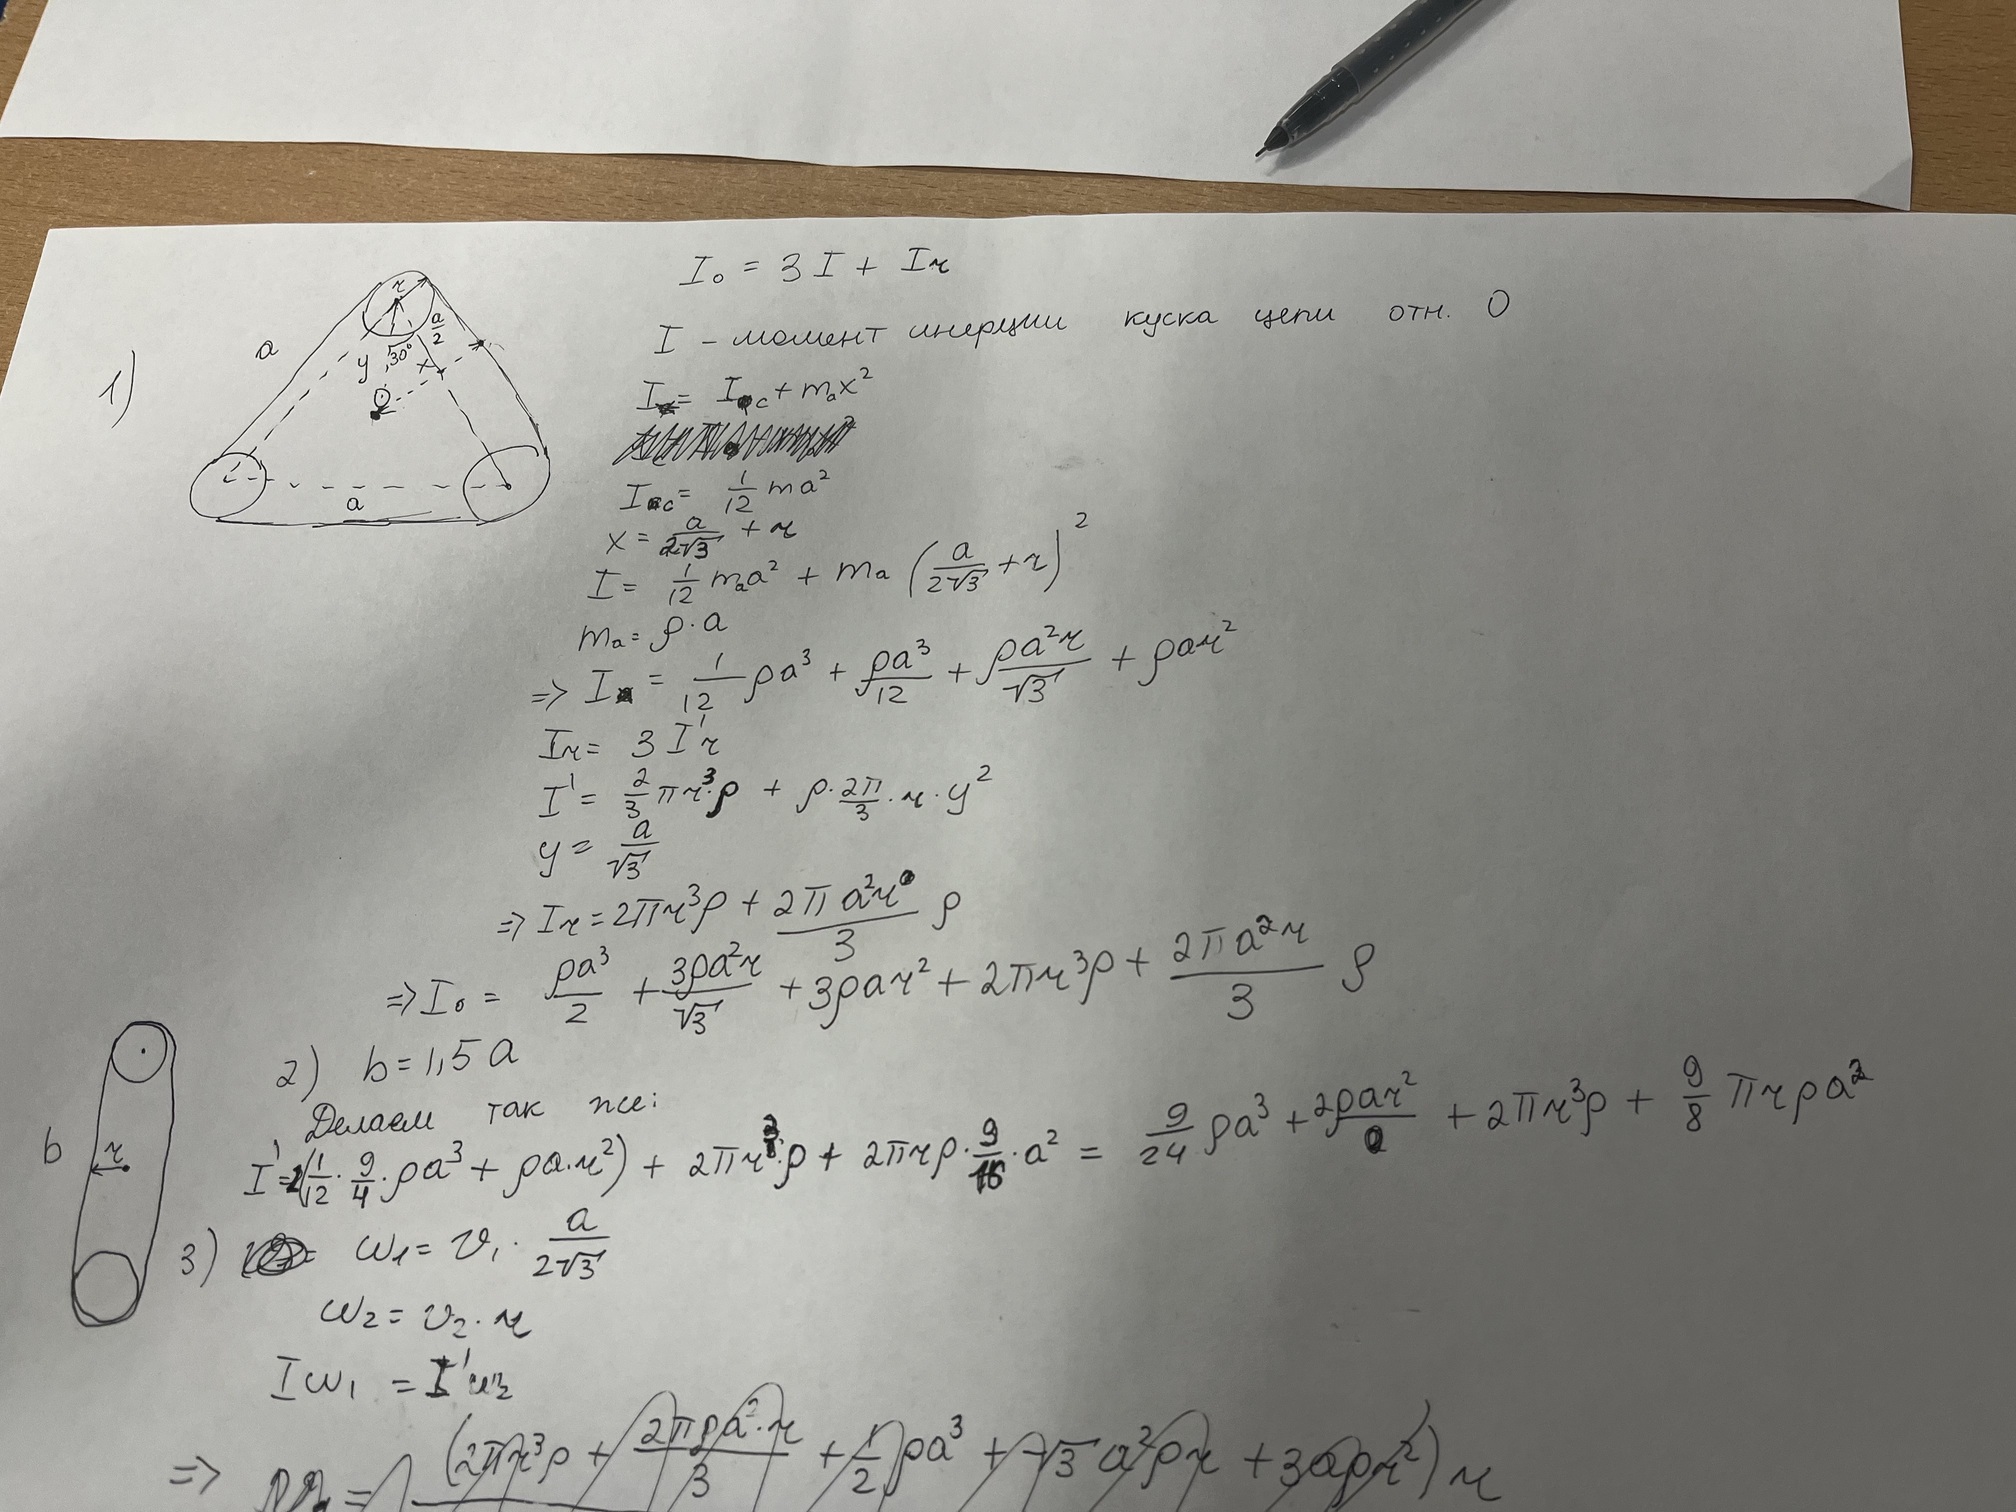 1)
a
r
a/2
y
30°
x
O
a
I₀ = 3I + Ir
I - момент инерции куска цепи отн. O
I = Ic + mₐx²
Ic = 1/12 ma²
x = a/(2√3) + r
I = 1/12 mₐa² + mₐ (a/(2√3) + r)²
mₐ = ρ·a
=> I = 1/12 ρa³ + ρa³/12 + ρa²r/√3 + ρar²
Ir = 3I'r
I' = 2/3 πr³·ρ + ρ·2π/3·r·y²
y = a/√3
=> Ir = 2πr³ρ + 2πa²r/3 ρ
=> I₀ = ρa³/2 + 3ρa²r/√3 + 3ρar² + 2πr³ρ + 2πa²r/3 ρ
2) b = 1,5a
Делаем так же:
b
r
I' = 2(1/12 · 9/4 · ρa³ + ρa·r²) + 2πr³·ρ + 2πrρ · 9/16 · a² = 9/24 ρa³ + 2ρar² + 2πr³ρ + 9/8 πrρa²
3) ω₁ = v₁ · a/(2√3)
ω₂ = v₂ · r
Iω₁ = I'ω₂
=> = (2πr³ρ + 2πρa²·r/3 + 1/2 ρa³ + √3 a²ρr + 3aρr²) r